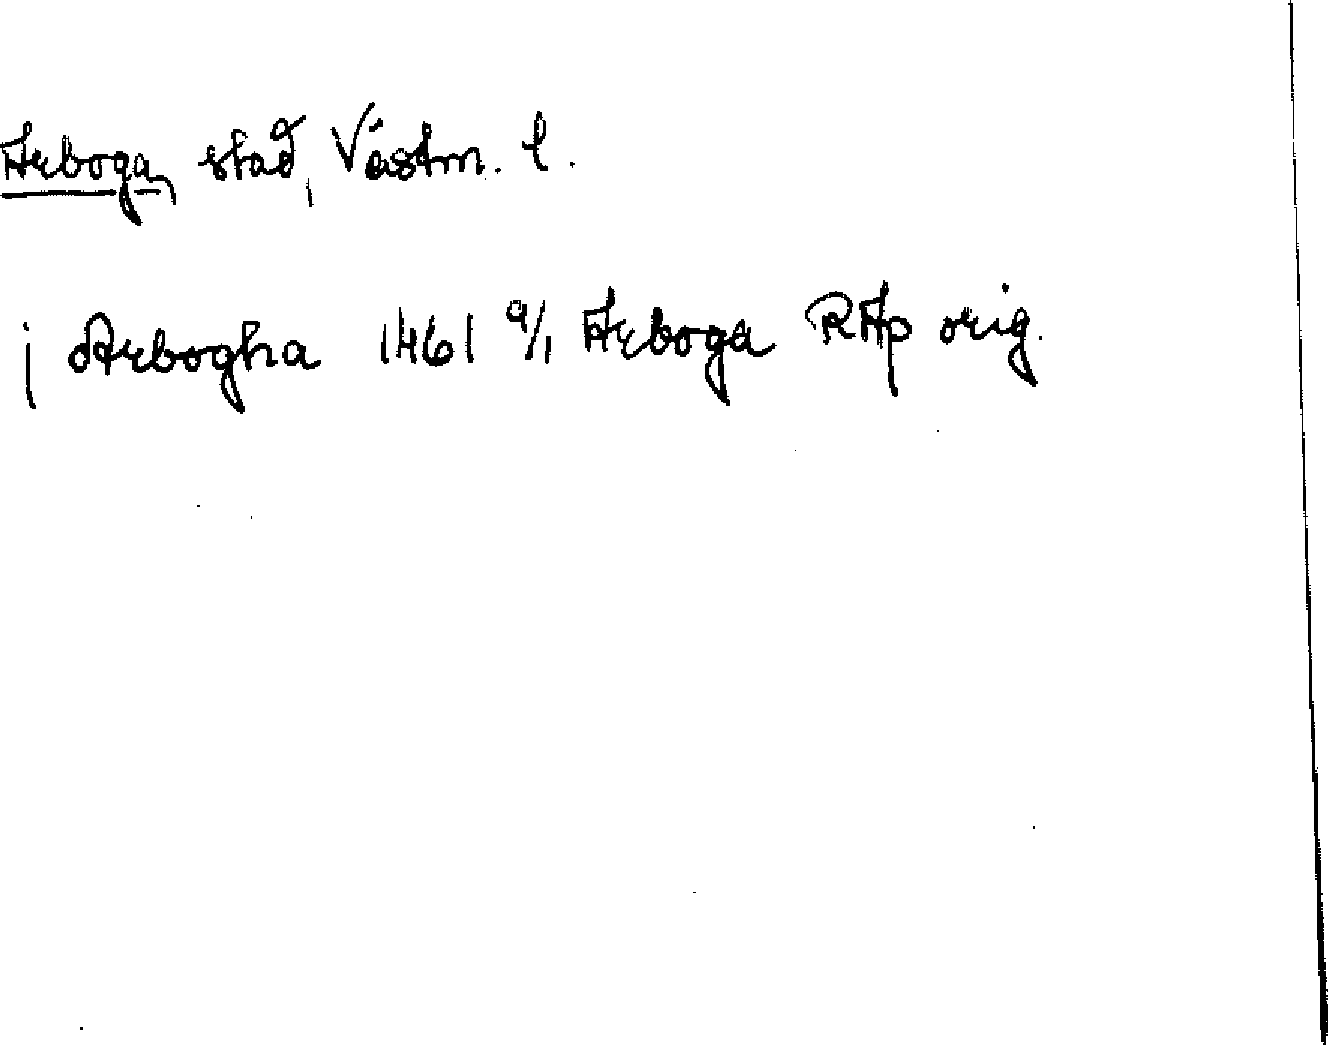 Arboga, stad, Västm. l.
j Arbogha 1461 9/1 Arboga RAp orig.